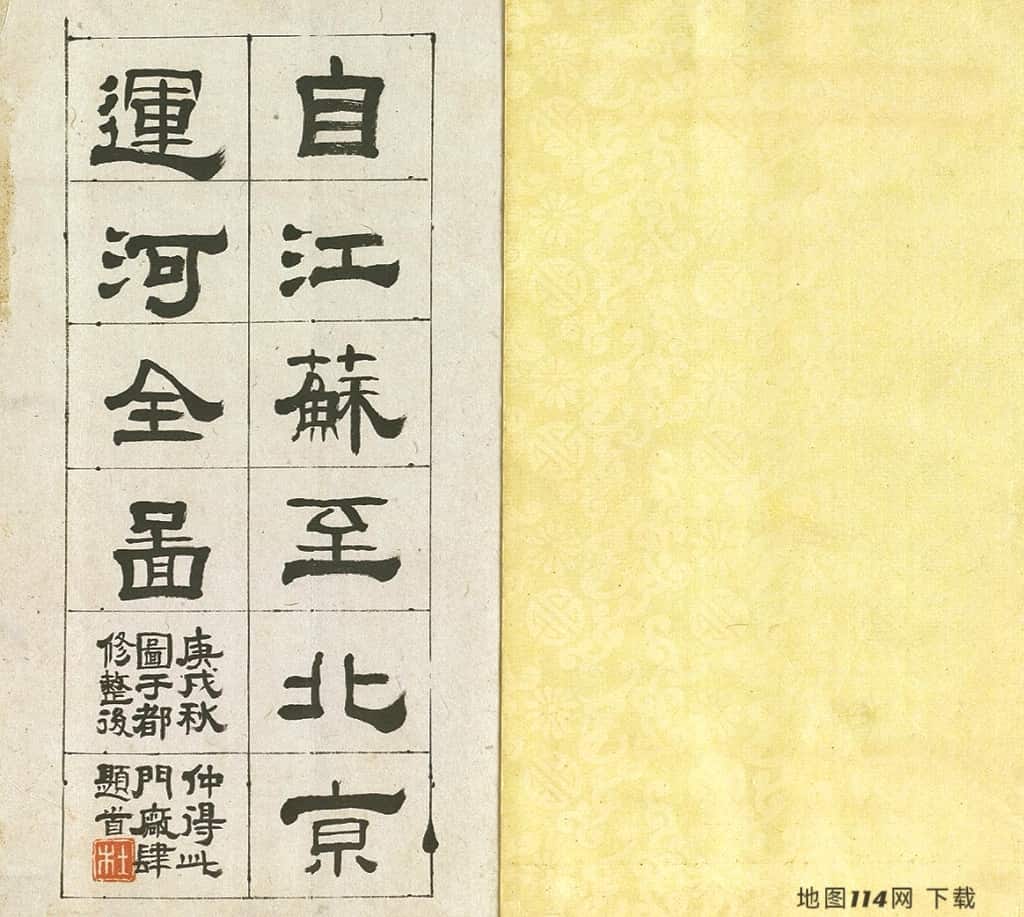 自江蘇至北亰
運河全啚
庚戌秋仲得此
圖于都門廠肆
修整後題首
杜
地图114网 下载